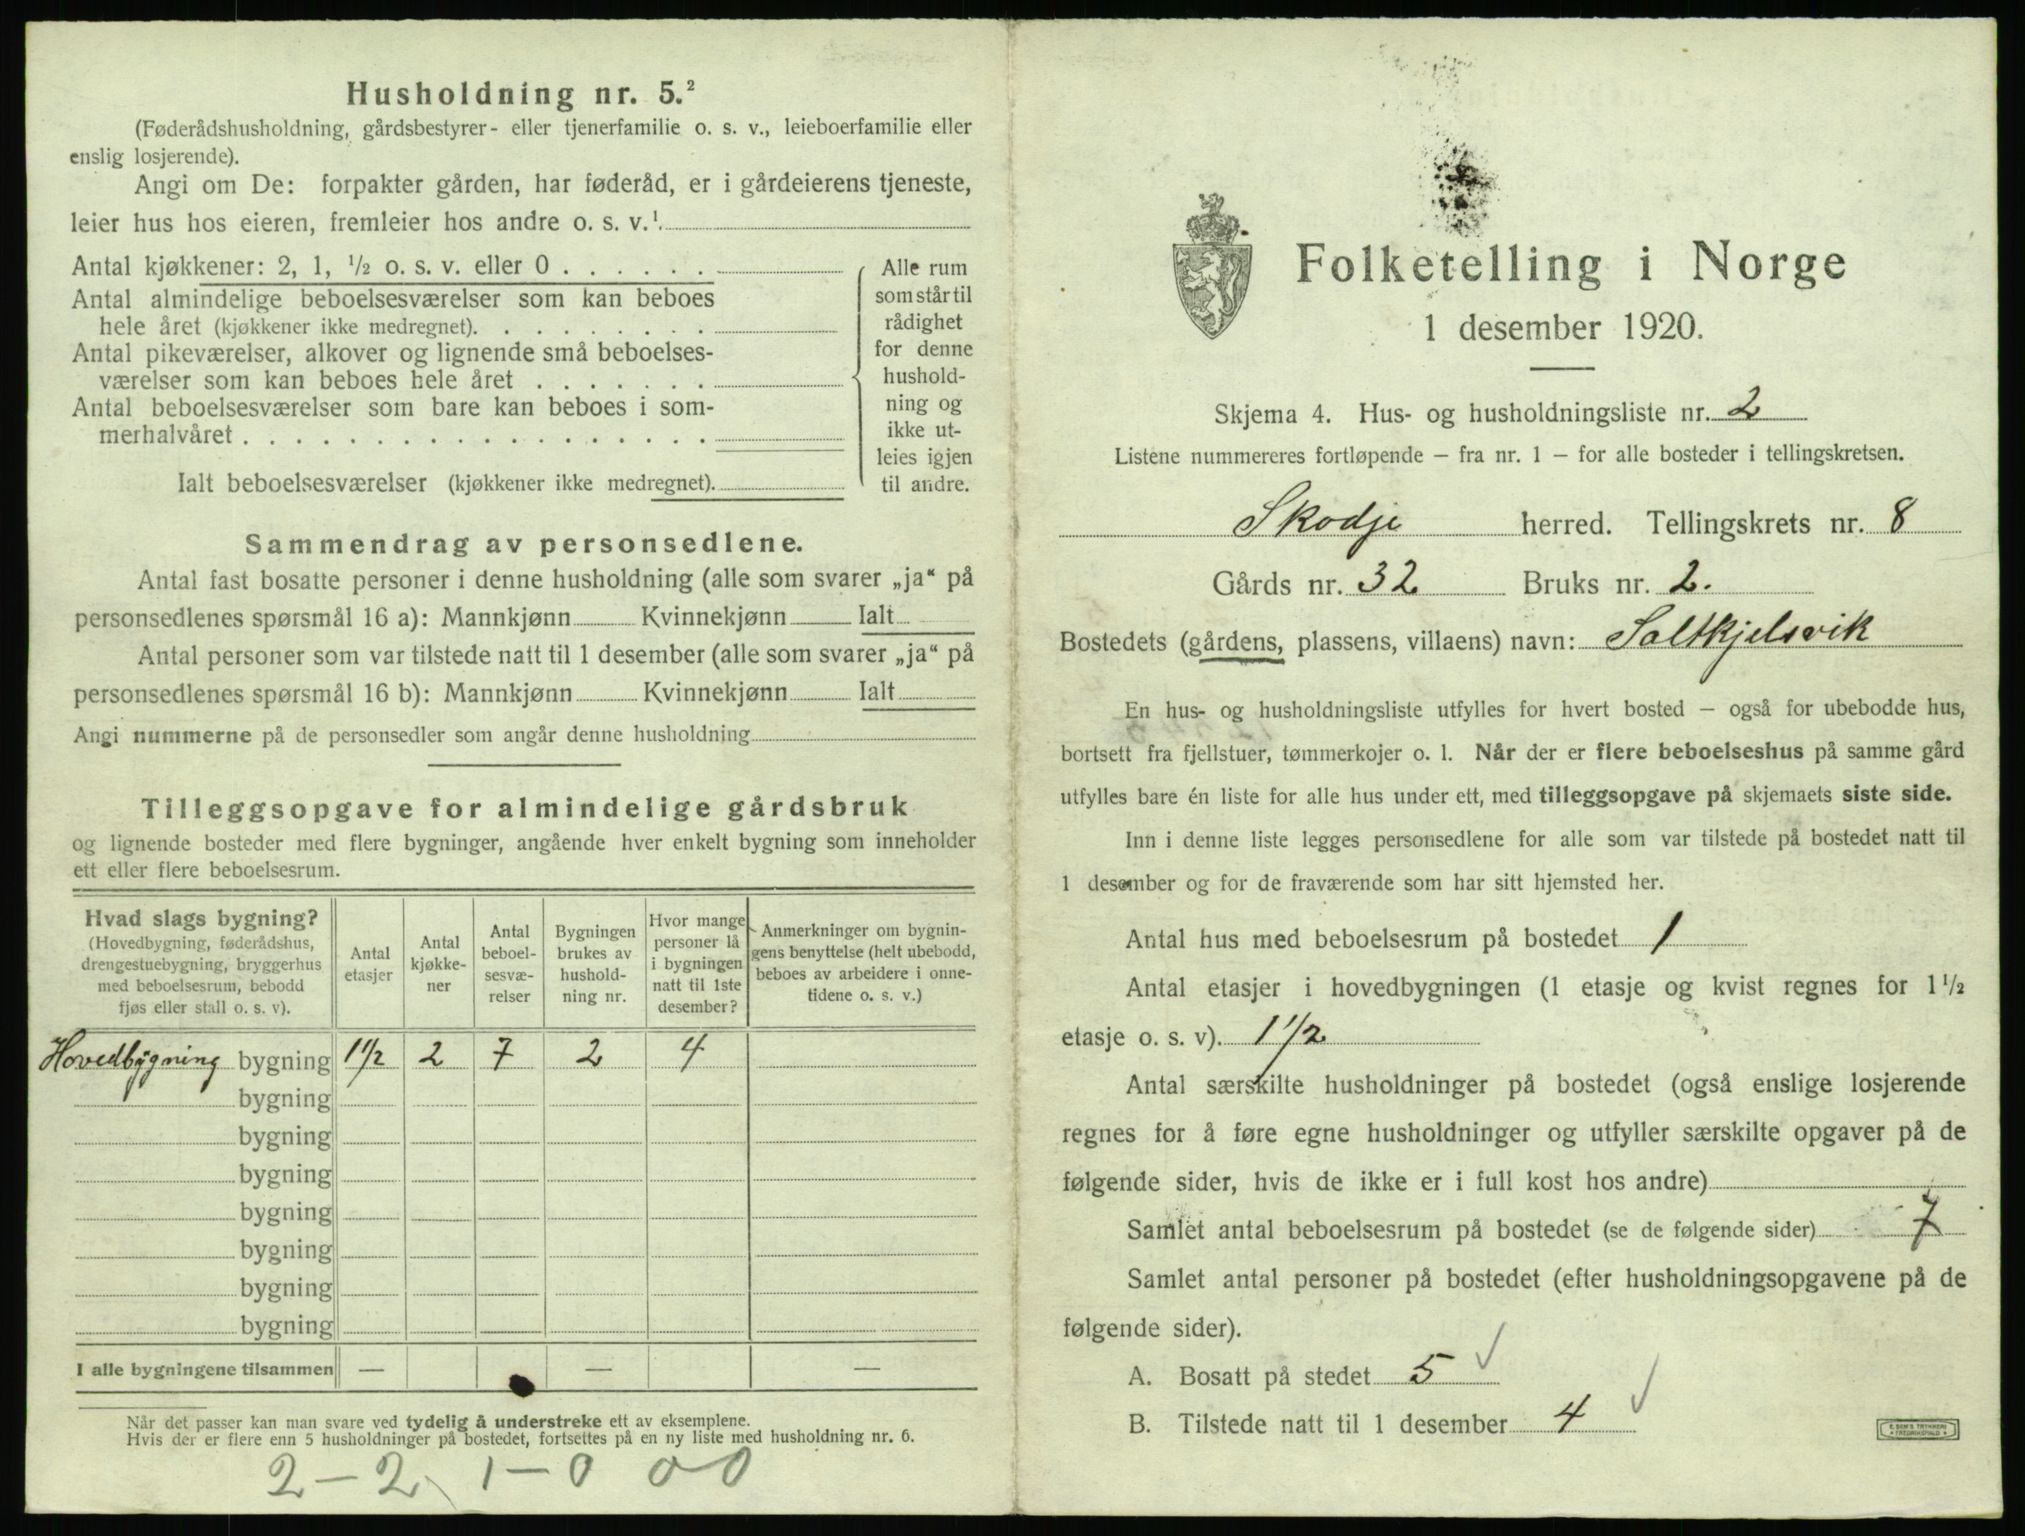 Husholdning nr. 5.²
(Føderådshusholdning, gårdsbestyrer- eller tjenerfamilie o. s. v., leieboerfamilie eller
enslig losjerende).
Angi om De: forpakter gården, har føderåd, er i gårdeierens tjeneste,
leier hus hos eieren, fremleier hos andre o. s. v.¹
Antal kjøkkener: 2, 1, ½ o. s. v. eller 0 . . . . . .
Antal almindelige beboelsesværelser som kan beboes
hele året (kjøkkener ikke medregnet). . . . . . . . .
Antal pikeværelser, alkover og lignende små beboelses-
værelser som kan beboes hele året . . . . . . .
Antal beboelsesværelser som bare kan beboes i som-
merhalvåret . . . . . . . . . . . . . . . . . .
Ialt beboelsesværelser (kjøkkener ikke medregnet).
Alle rum
som står til
rådighet
for denne
hushold-
ning og
ikke ut-
leies igjen
til andre.
Sammendrag av personsedlene.
Antal fast bosatte personer i denne husholdning (alle som svarer „ja“ på
personsedlenes spørsmål 16 a): Mannkjønn Kvinnekjønn Ialt
Antal personer som var tilstede natt til 1 desember (alle som svarer „ja“ på
personsedlenes spørsmål 16 b): Mannkjønn Kvinnekjønn Ialt
Angi nummerne på de personsedler som angår denne husholdning
Tilleggsopgave for almindelige gårdsbruk
og lignende bosteder med flere bygninger, angående hver enkelt bygning som inneholder
ett eller flere beboelsesrum.
Hvad slags bygning?
(Hovedbygning, føderådshus,
drengestuebygning, bryggerhus
med beboelsesrum, bebodd
fjøs eller stall o. s. v).
Antal
etasjer
Antal
kjøkke-
ner
Antal
beboel-
sesvæ-
relser
Bygningen
brukes av
hushold-
ning nr.
Hvor mange
personer lå
i bygningen
natt til 1ste
desember?
Anmerkninger om bygnin-
gens benyttelse (helt ubebodd,
beboes av arbeidere i onne-
tidene o. s. v.)
Hovedbygning bygning 1 1/2 2 7 2 4
bygning
bygning
bygning
bygning
bygning
bygning
bygning
I alle bygningene tilsammen — — —
Når det passer kan man svare ved tydelig å understreke ett av eksemplene.
Hvis der er flere enn 5 husholdninger på bostedet, fortsettes på en ny liste med husholdning nr. 6.
2 - 2 1 - 0 0 0
Folketelling i Norge
1 desember 1920.
Skjema 4. Hus- og husholdningsliste nr. 2
Listene nummereres fortløpende — fra nr. 1 — for alle bosteder i tellingskretsen.
Skodje herred. Tellingskrets nr. 8
Gårds nr. 32 Bruks nr. 2.
Bostedets (gårdens, plassens, villaens) navn: Saltkjelsvik
En hus- og husholdningsliste utfylles for hvert bosted — også for ubebodde hus,
bortsett fra fjellstuer, tømmerkojer o. l. Når der er flere beboelseshus på samme gård
utfylles bare én liste for alle hus under ett, med tilleggsopgave på skjemaets siste side.
Inn i denne liste legges personsedlene for alle som var tilstede på bostedet natt til
1 desember og for de fraværende som har sitt hjemsted her.
Antal hus med beboelsesrum på bostedet 1
Antal etasjer i hovedbygningen (1 etasje og kvist regnes for 1 ½
etasje o. s. v). 1 1/2
Antal særskilte husholdninger på bostedet (også enslige losjerende
regnes for å føre egne husholdninger og utfyller særskilte opgaver på de
følgende sider, hvis de ikke er i full kost hos andre)
Samlet antal beboelsesrum på bostedet (se de følgende sider) 7
Samlet antal personer på bostedet (efter husholdningsopgavene på de
følgende sider).
A. Bosatt på stedet 5 ✓
B. Tilstede natt til 1 desember 4 ✓